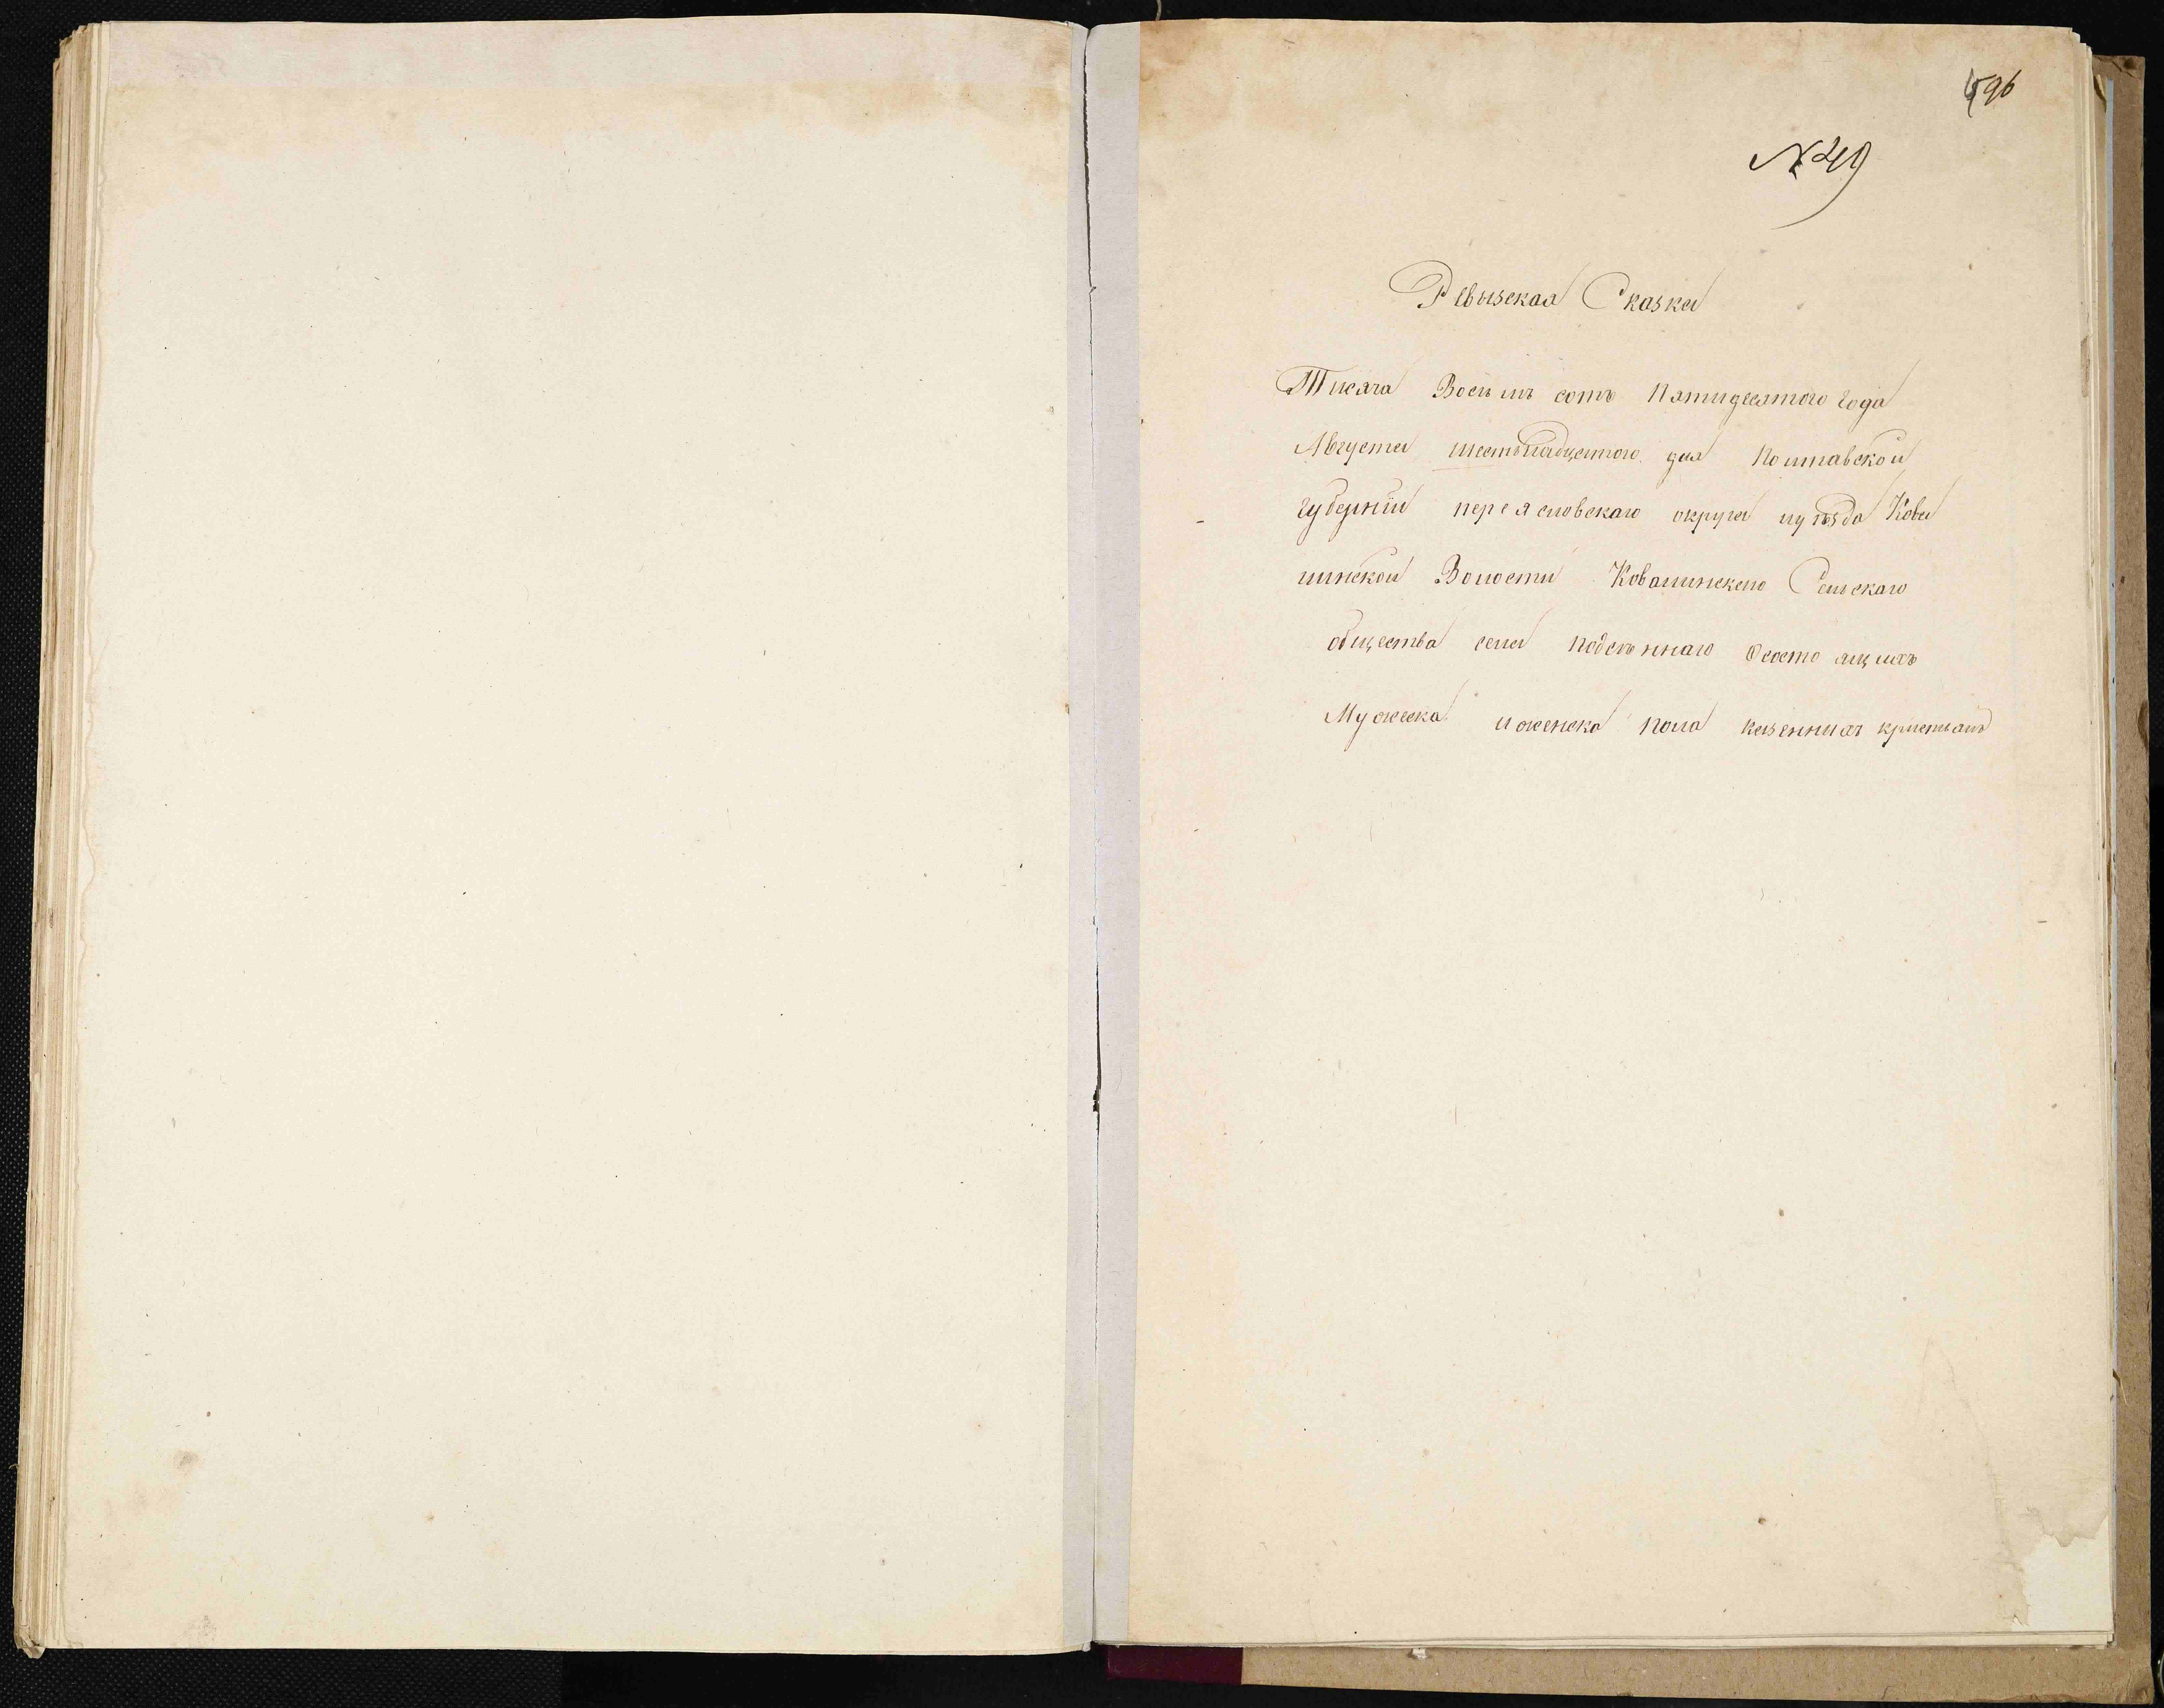 496
№ 49
Ревызская Сказка
Тисяча Восемъ сотъ Пятидесятого года
Августа шестьнадцятого дня Полтавской
губернїи переясловскаго округа иуѣзда Кова
линской Волости Ковалинскаго Сельскаго
общества села подсѣннаго Осостоящихъ
Мужеска иженска пола казеннихъ кристьянъ